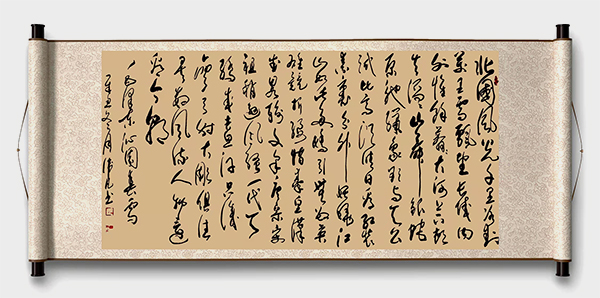 北國風光千里冰封
萬里雪飄望長城內
外惟餘莽莽大河上下頓
失滔滔山舞銀蛇
原馳蠟象欲與天公
試比高須晴日看紅裝
素裹分外妖嬈江
山如此多嬌引無數英
雄競折腰惜秦皇漢
武略輸文采唐宗宋
祖稍遜風騷一代天
驕成吉思汗只識
彎弓射大雕俱往
矣數風流人物還
看今朝
毛澤東沁園春雪
辛丑冬月